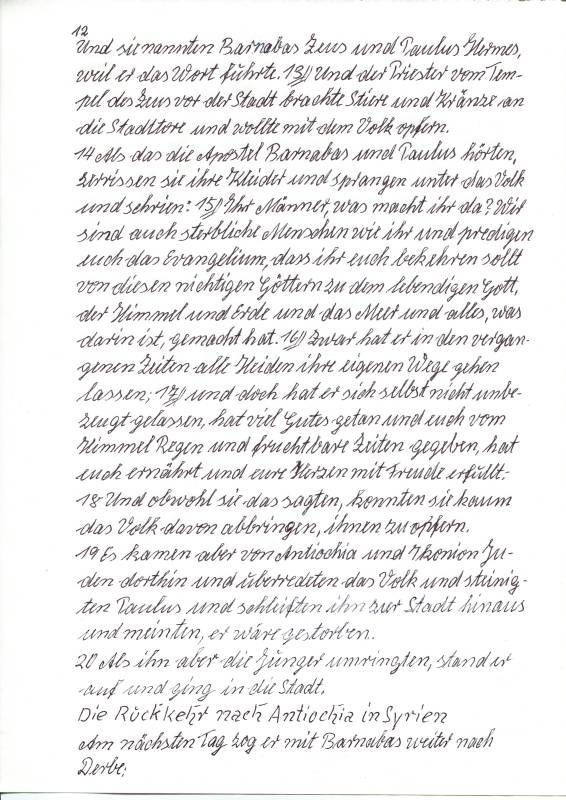 12
Und sie nannten Barnabas Zeus und Paulus Hermes,
weil er das Wort führte. 13)) Und der Priester vom Tem-
pel des Zeus vor der Stadt brachte Stiere und Kränze an
die Stadttore und wollte mit dem Volk opfern.
14 Als das die Apostel Barnabas und Paulus hörten,
zerrissen sie ihre Kleider und sprangen unter das Volk
und schrien: 15)) Ihr Männer, was macht ihr da? Wir
sind auch sterbliche Menschen wie ihr und predigen
euch das Evangelium, dass ihr euch bekehren sollt
von diesen nichtigen Göttern zu dem lebendigen Gott,
der Himmel und Erde und das Meer und alles, was
darin ist, gemacht hat. 16)) Zwar hat er in den vergan-
genen Zeiten alle Heiden ihre eigenen Wege gehen
lassen; 17)) und doch hat er sich selbst nicht unbe-
zeugt gelassen, hat viel Gutes getan und euch vom
Himmel Regen und fruchtbare Zeiten gegeben, hat
euch ernährt und eure Herzen mit Freude erfüllt.
18 Und obwohl sie das sagten, konnten sie kaum
das Volk davon abbringen, ihnen zu opfern.
19 Es kamen aber von Antiochia und Ikonion Ju-
den dorthin und überredeten das Volk und steinig-
ten Paulus und schleiften ihn zur Stadt hinaus
und meinten, er wäre gestorben.
20 Als ihn aber die Jünger umringten, stand er
auf und ging in die Stadt.
Die Rückkehr nach Antiochia in Syrien
Am nächsten Tag zog er mit Barnabas weiter nach
Derbe;